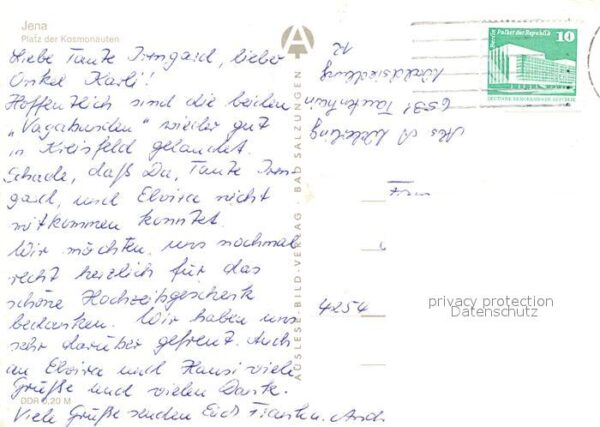 Jena
Platz der Kosmonauten
Liebe Tante Irmgard, lieber
Onkel Karli!
Hoffentlich sind die beiden
„Vagabunden" wieder gut
in Kreisfeld gelandet.
Schade, daß Du, Tante Irm-
gard, und Elvira nicht
mitkommen konntet.
Wir möchten uns nochmal
recht herzlich für das
schöne Hochzeitsgeschenk
bedanken. Wir haben uns
sehr darüber gefreut. Auch
an Elvira und Hansi viele
Grüße und vielen Dank.
Viele Grüße senden Euch
DDR 0,20 M
AUSLESE-BILD-VERLAG · BAD SALZUNGEN
Berlin Palast der Republik
10
DEUTSCHE DEMOKRATISCHE REPUBLIK
12
Waldsiedlung
6531
Frau
4254
privacy protection
Datenschutz